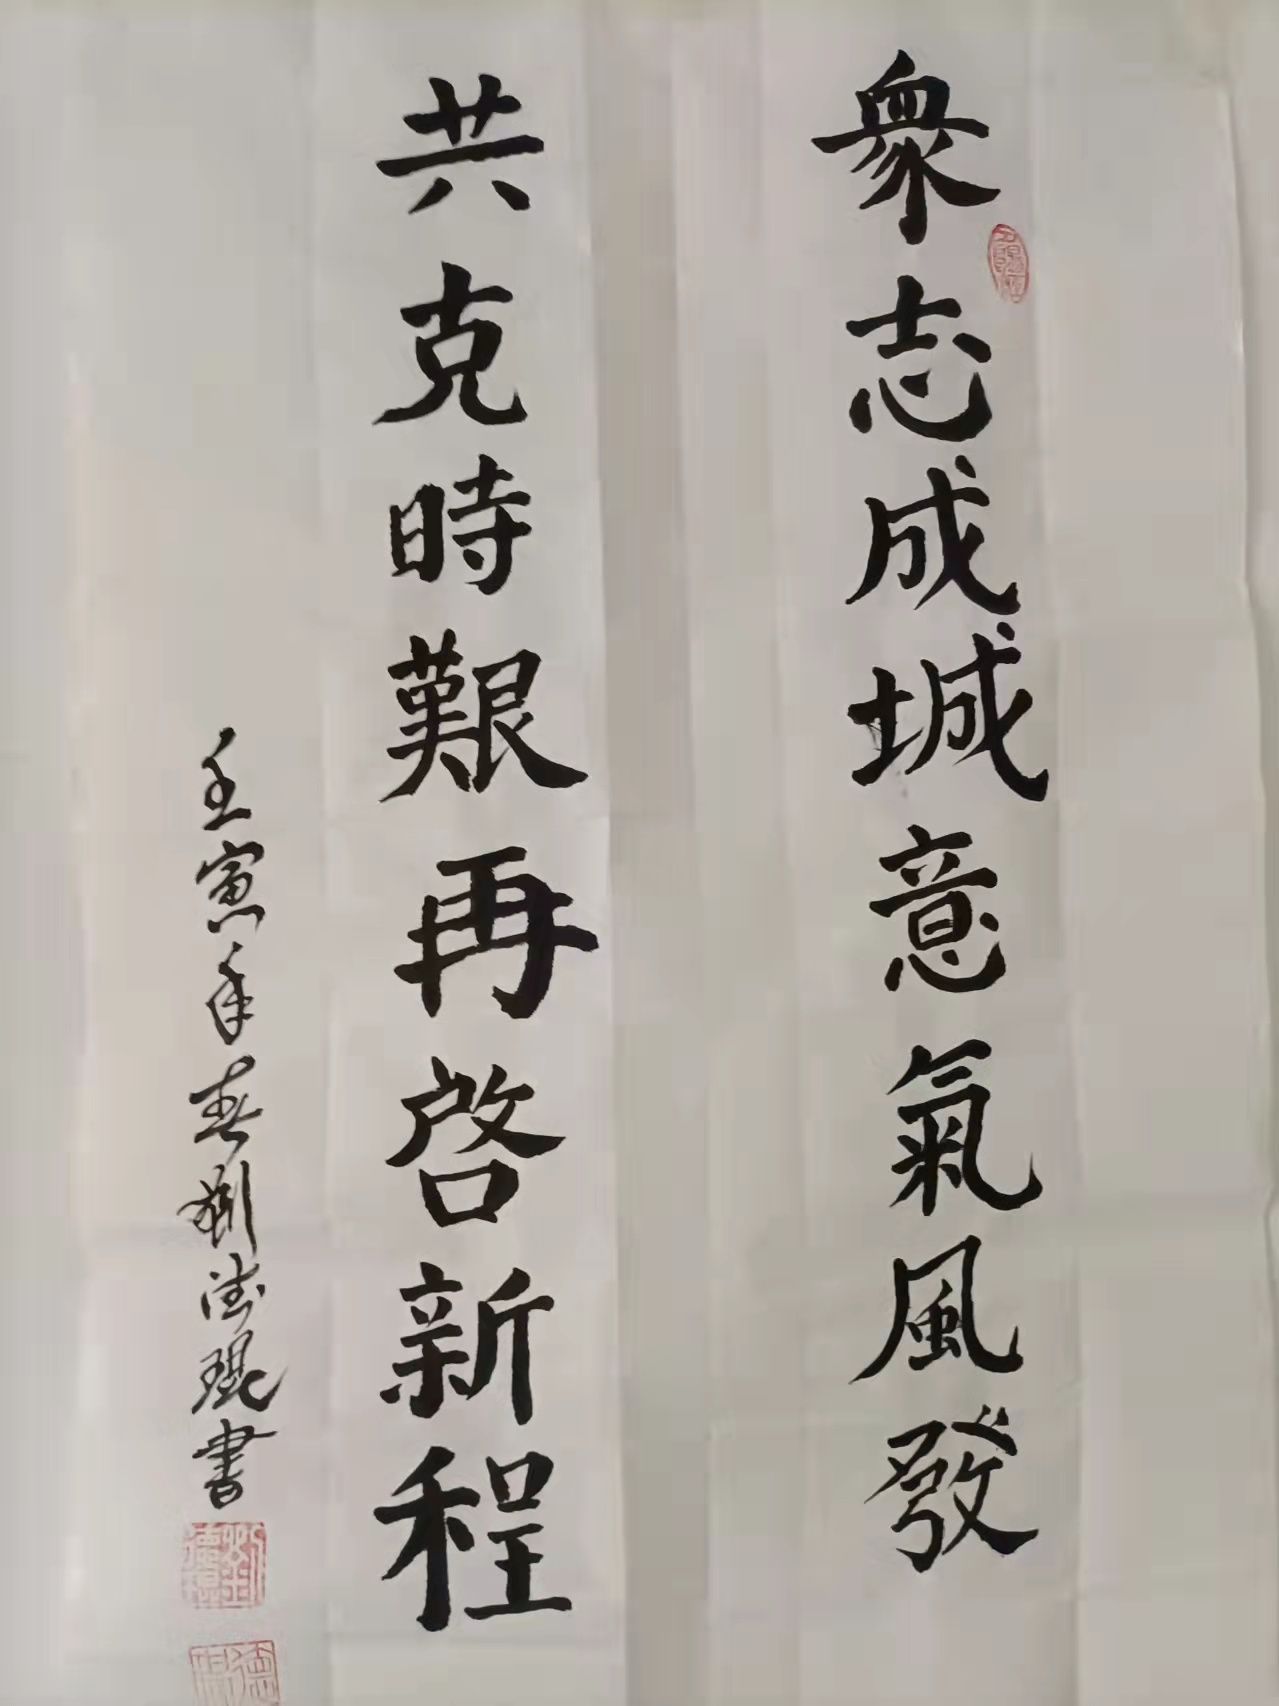 衆志成城意氣風發
共克時艱再啓新程
壬寅年春劉德琨書
劉德琨